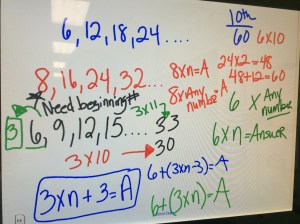 6, 12, 18, 24 ....
10th
60
6x10
8, 16, 24, 32...
8xn=A
24x2=48
8xAny number=A
48+12=60
Need beginning#
3x11
6 x Any number
3 6, 9, 12, 15.... 33
6xn=Answer
3x10 → 30
6+(3xn-3)=A
3xn+3=A
6+(3xn)=A